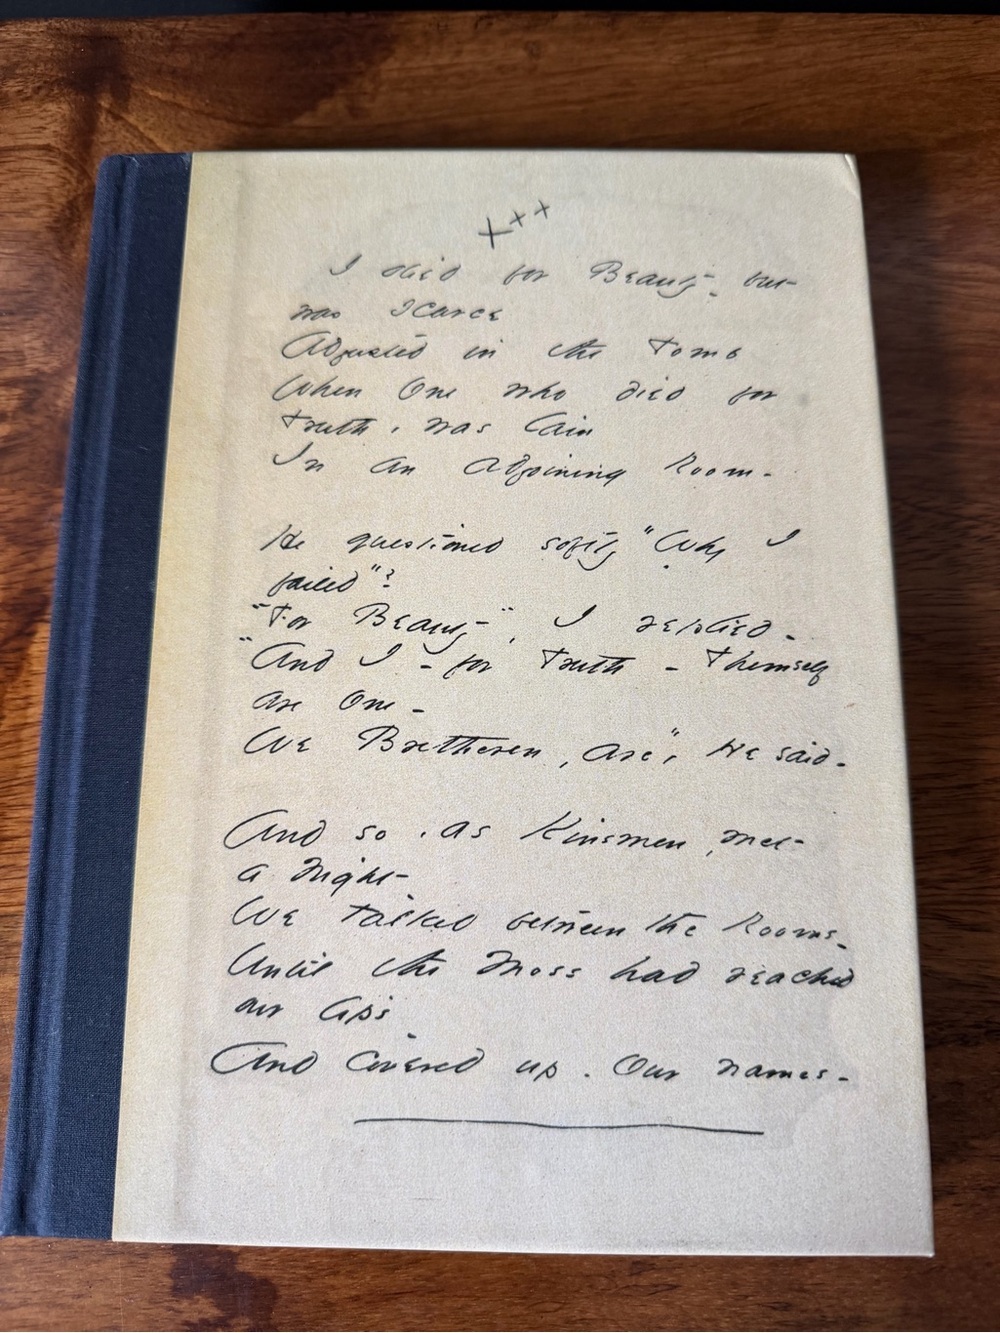 x x x
I died for Beauty - but
was scarce
Adjusted in the Tomb
When One who died for
Truth, was lain
In an adjoining Room -
He questioned softly "Why I
failed"?
"For Beauty", I replied -
"And I - for Truth - Themself
are One -
We Bretheren, are", He said -
And so, as Kinsmen, met
a Night -
We talked between the Rooms -
Until the Moss had reached
our lips -
And covered up - Our names -